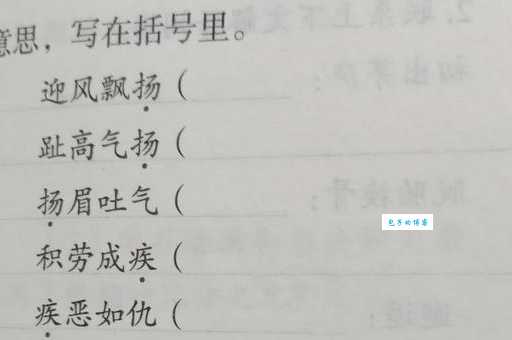 意思，写在括号里。
迎风飘扬（
趾高气扬（
扬眉吐气（
积劳成疾（
疾恶如仇（